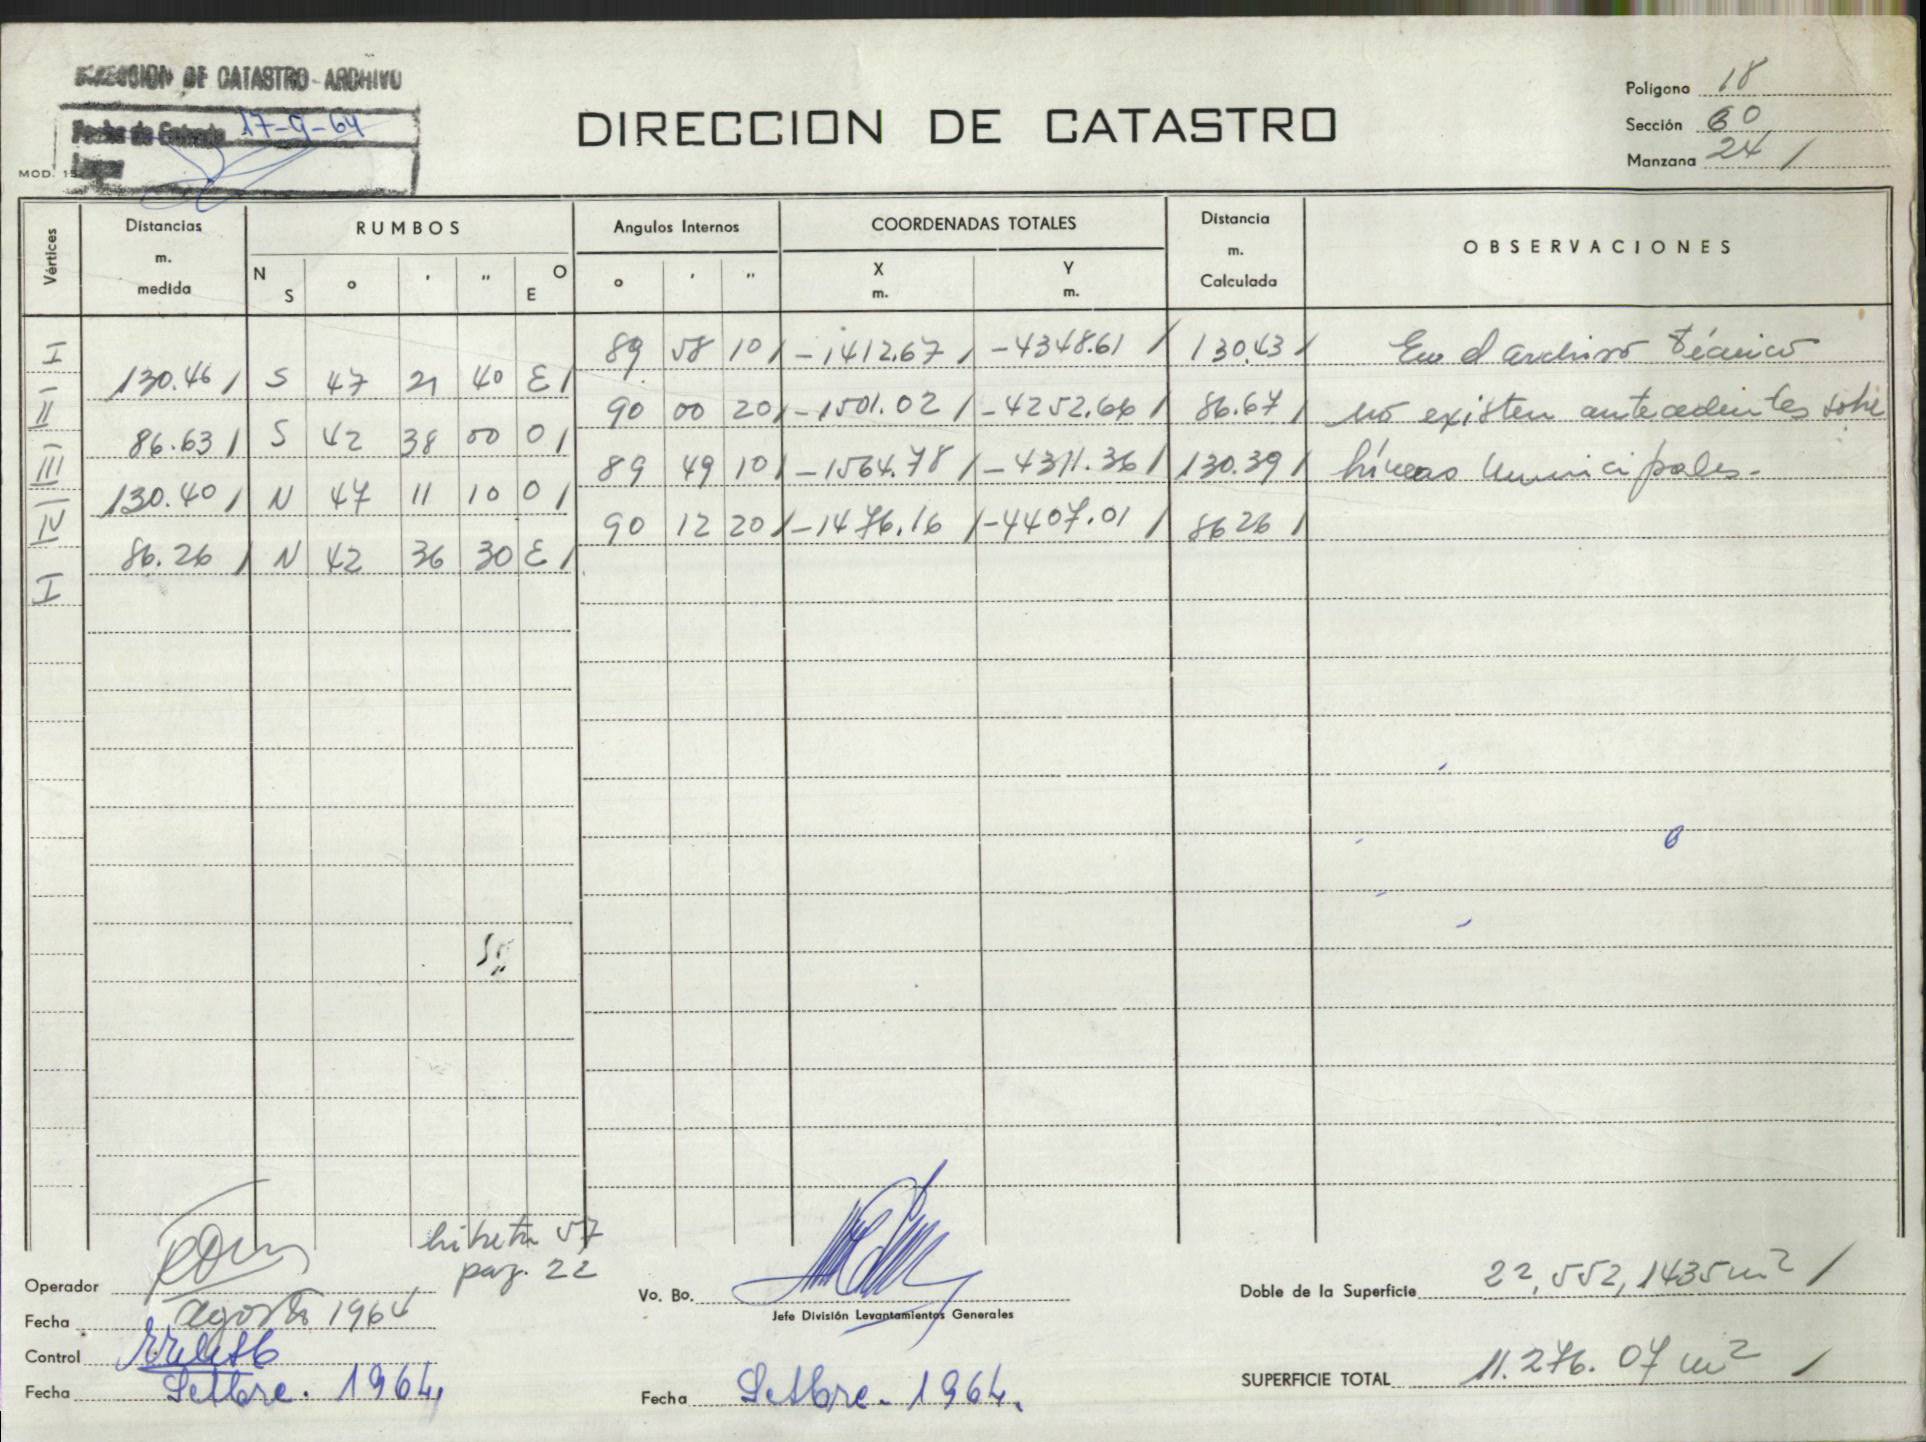 DIRECCION DE CATASTRO - ARCHIVO
Fecha de Entrada 17-9-64
MOD. 15
DIRECCION DE CATASTRO
Polígono 18
Sección 60
Manzana 24 /
Vértices
Distancias m. medida
RUMBOS
N S ° ' " O E
Angulos Internos
° ' "
COORDENADAS TOTALES
X m. Y m.
Distancia m. Calculada
OBSERVACIONES
I 89 58 10 / -1412.67 / -4348.61 / 130.43 / En el archivo técnico
130.46 / S 47 21 40 E /
II 90 00 20 / -1501.02 / -4252.66 / 86.67 / no existen antecedentes sobre
86.63 / S 42 38 00 O /
III 89 49 10 / -1564.78 / -4311.36 / 130.39 / líneas municipales.-
130.40 / N 47 11 10 O /
IV 90 12 20 / -1476.16 / -4407.01 / 86 26 /
86.26 / N 42 36 30 E /
I
libreta 57
pag. 22
Operador
Fecha agosto 1964
Control
Fecha Setbre. 1964,
Vo. Bo.
Jefe División Levantamientos Generales
Fecha Setbre. 1964.
Doble de la Superficie 22,552,1435 m2 /
SUPERFICIE TOTAL 11.276.07 m2 /